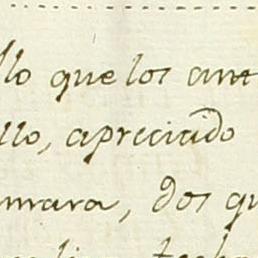 llo que los ant
llo, apreciado
mara, dos qu